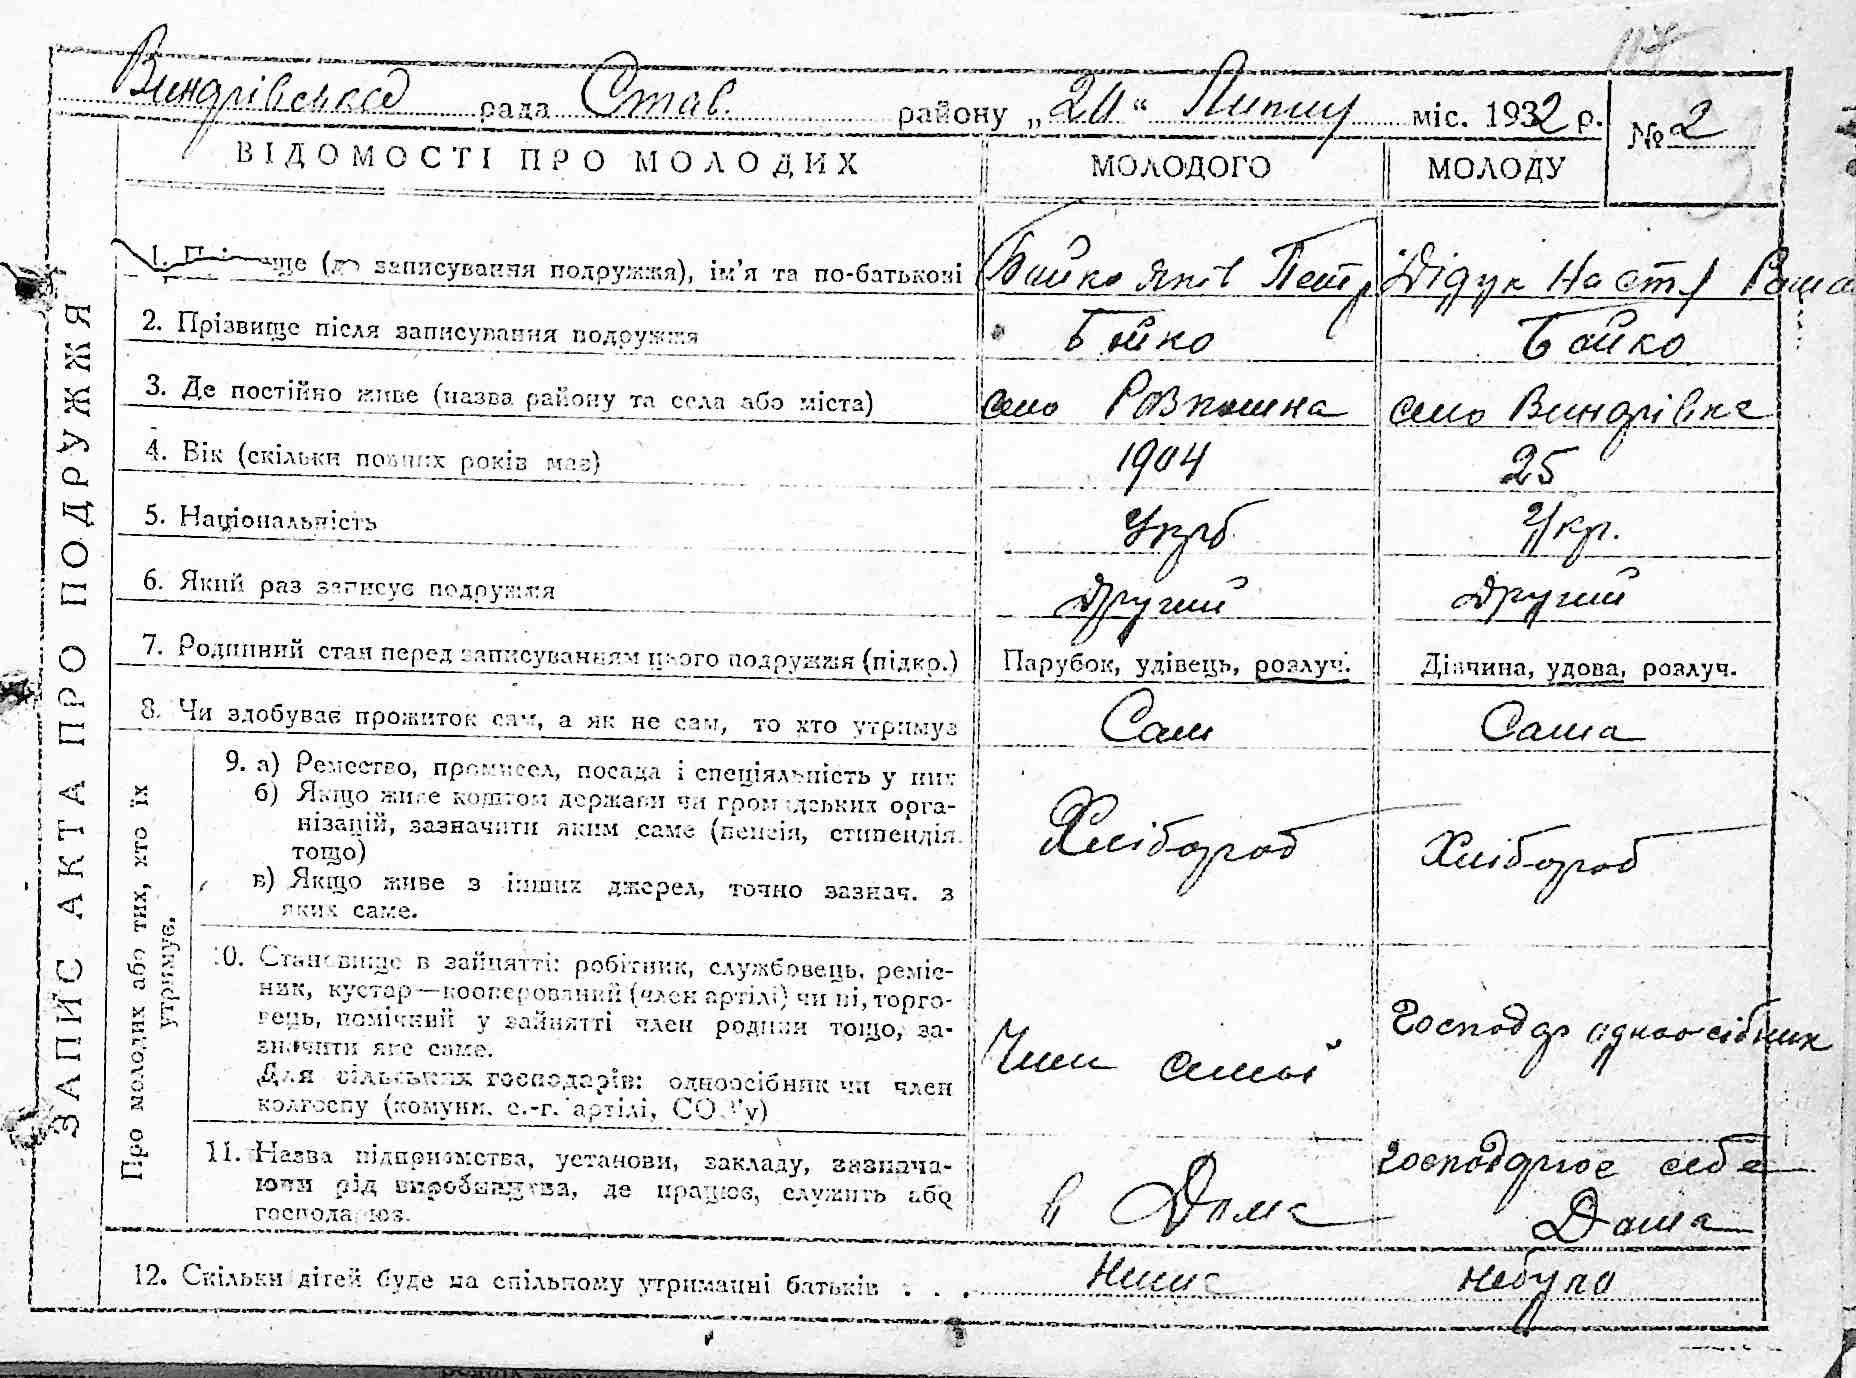 Виндрівська рада Став. району „20“ Лютий міс. 1932 р.
№ 2
ВІДОМОСТІ ПРО МОЛОДИХ МОЛОДОГО МОЛОДУ
ЗАПИС АКТА ПРО ПОДРУЖЖЯ
1. (до записування подружжя), ім’я та по-батькові Бойко Яків Петр Дідук Наст
2. Прізвище після записування подружжя Бойко Бойко
3. Де постійно живе (назва району та села або міста) село Розкошна село Виндрівка
4. Вік (скільки повних років має) 1904 25
5. Національність Укр Укр.
6. Який раз записує подружжя Другий Другий
7. Родинний стан перед записуванням цього подружжя (підкр.) Парубок, удівець, розлуч. Дівчина, удова, розлуч.
8. Чи здобуває прожиток сам, а як не сам, то хто утримує Сам Сама
Про молодих або тих, хто їх
утримує.
9. а) Ремество, промисел, посада і спеціяльність у них
б) Якщо живе коштом держави чи громадських орга-
нізацій, зазначити яким саме (пенсія, стипендія
тощо)
Хлібороб Хлібороб
в) Якщо живе з інших джерел, точно зазнач. з
яких саме.
10. Становище в зайнятті: робітник, службовець, реміс-
ник, кустар—кооперований (член артілі) чи ні, торго-
вець, помічний у зайнятті член родини тощо, за-
значити яке саме.
Для сільських господарів: одноосібник чи член
колгоспу (комуни, с.-г. артілі, СОЗ’у)
Член семьї Господар одноосібник
11. Назва підприємства, установи, закладу, зазнача-
ючи рід виробництва, де працює, служить або
господарює.
в Дома господарює себе
Дома
12. Скільки дітей буде на спільному утриманні батьків . . . Нема небуло